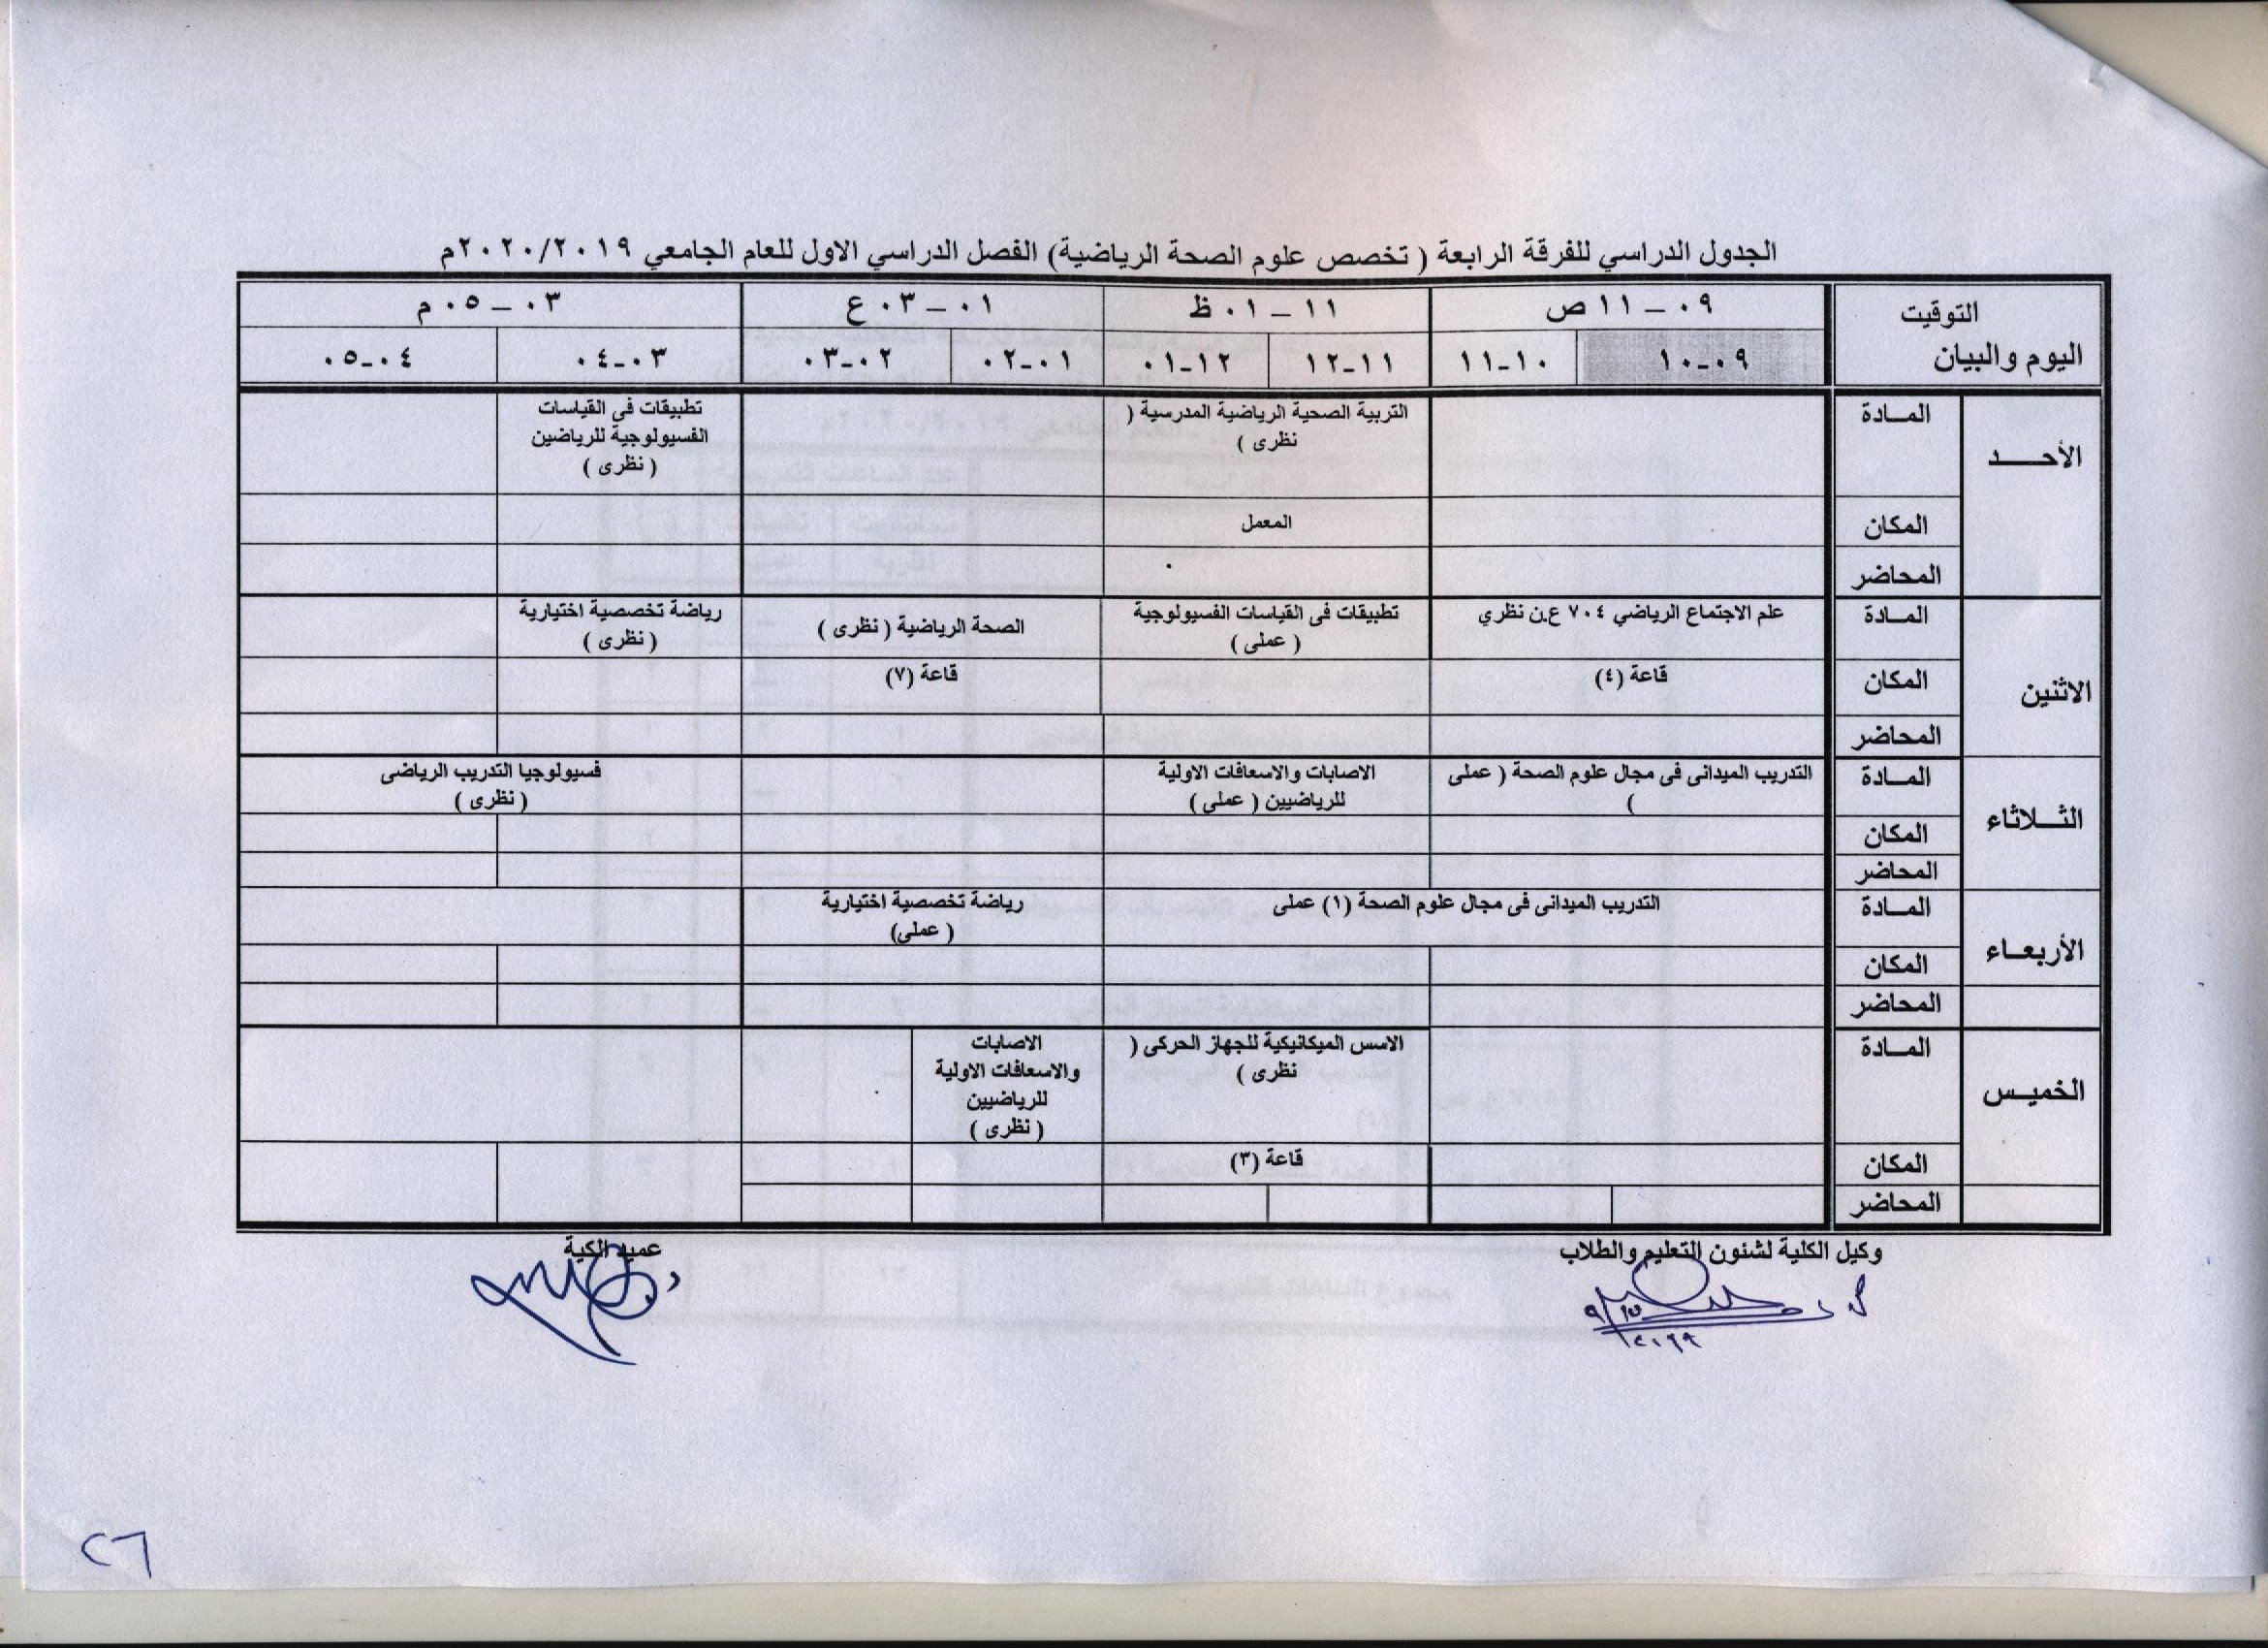 الجدول الدراسي للفرقة الرابعة ( تخصص علوم الصحة الرياضية) الفصل الدراسي الاول للعام الجامعي ٢٠٢٠/٢٠١٩م
التوقيت
اليوم والبيان
٠٩ – ١١ ص
١١ – ٠١ ظ
٠١ – ٠٣ ع
٠٣ – ٠٥ م
٠٩-١٠
١٠-١١
١١-١٢
١٢-٠١
٠١-٠٢
٠٢-٠٣
٠٣-٠٤
٠٤-٠٥
الأحــــد
المــادة
التربية الصحية الرياضية المدرسية (
نظرى )
تطبيقات فى القياسات
الفسيولوجية للرياضين
( نظرى )
المكان
المعمل
المحاضر
الاثنين
المــادة
علم الاجتماع الرياضي ٧٠٤ ع.ن نظري
تطبيقات فى القياسات الفسيولوجية
( عملى )
الصحة الرياضية ( نظرى )
رياضة تخصصية اختيارية
( نظرى )
المكان
قاعة (٤)
قاعة (٧)
المحاضر
الثــلاثاء
المــادة
التدريب الميدانى فى مجال علوم الصحة ( عملى
)
الاصابات والاسعافات الاولية
للرياضيين ( عملى )
فسيولوجيا التدريب الرياضى
( نظرى )
المكان
المحاضر
الأربعـاء
المــادة
التدريب الميدانى فى مجال علوم الصحة (١) عملى
رياضة تخصصية اختيارية
( عملى)
المكان
المحاضر
الخميـس
المــادة
الاسس الميكانيكية للجهاز الحركى (
نظرى )
الاصابات
والاسعافات الاولية
للرياضيين
( نظرى )
المكان
قاعة (٣)
المحاضر
وكيل الكلية لشئون التعليم والطلاب
عميد الكية
٢٠١٩
٢٦